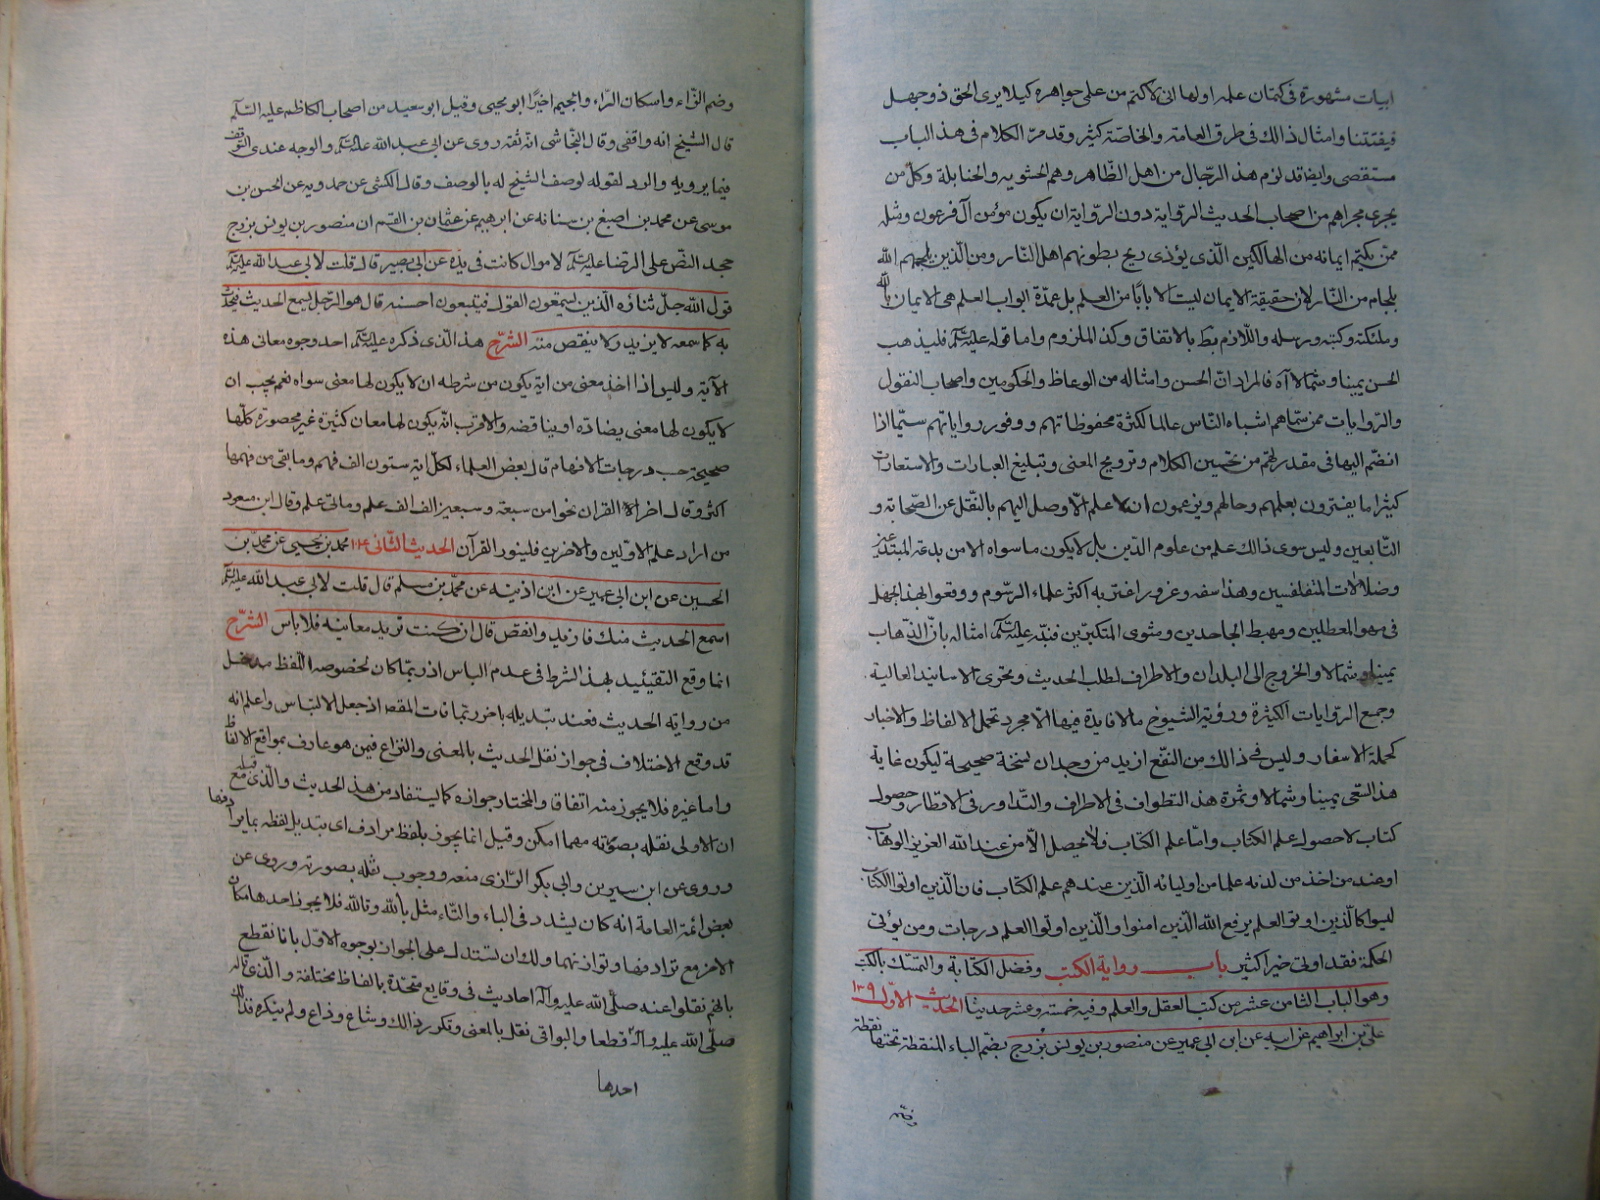 ابيات مشهورة فى كتمان علمه اولها انى لاكتم من علمى جواهره كيلا يرى الحق ذو جهل
فيفتتنا وامثال ذالك فى طرق العامة والخاصّة كثير وقد مرّ الكلام فى هذ الباب
مستقصى وايضا قد لزم هذ الرّجال من اهل الظّاهر وهم الحشويه والحنابلة وكلّ من
يجرى مجراهم من اصحاب الحديث الرّواية دون الرّواية ان يكون مؤمن آل فرعون ومثله
ممّن يكتم ايمانه من الهالكين الّذى يؤذى ريح بطونهم اهل النّار ومن الّذين يلجمهم اللّه
بلجام من النّار لان حقيقة الايمان ليست الا بابًا من العلم بل عمدة ابواب العلم هى الايمان باللّه
وملئكته وكتبه ورسله واللّازم بط بالاتفاق وكذ الملزوم واما قوله عليه السّلم فليذهب
الحسن يمينا وشمالا آه فالمراد انّ الحسن وامثاله من الوعاظ والحكومين واصحاب النقول
والرّوايات ممن سمّاهم اشباه النّاس عالما لكثرة محفوظاتهم ووفور رواياتهم سيّما اذا
انضم اليها فى مقدرتهم من تحسين الكلام وترويح المعنى وتبليغ العبارات والاستعارات
كثيرا ما يفترون بعلمهم وحالهم ويزعمون ان لا علم الّا وصل اليهم بالنّقل عن الصّحابة و
التّابعين وليس سوى ذالك علم من علوم الدّين بل لا يكون ما سواه الا من بدعة المبتدعين
وضلالات المتفلسفين وهذا سفه وغرور اغتر به اكثر علماء الرسّوم ووقعوا لهذ الجهل
فى مهو المعطلين ومهبط الجاحدين ومثوى المتكبرّين فنبّه عليه السّلم امثاله بانّ الذّهاب
يمينا وشمالا والخروج الى البلدان والاطراف لطلب الحديث وتحرّى الاسانيد العالية
وجمع الرّوايات الكثيرة ورؤية الشيوخ مالا فايدة فيها الّا مجرد تحمل الالفاظ والاخبار
كحملة الاسفار وليس فى ذالك من النّفع ازيد من وجدان نسخة صحيحة ليكون غاية
هذ السّعى يمينا وشمالا وثمرة هذ التطواف فى الاطراف والتّداور فى الاقطار وحصول
كتاب لاحصول علم الكتاب وامّا علم الكتاب فلا يحصل الّا من عند اللّه العزيز الوهاب
او عند من اخذ من لدنه علما من اوليائه الّذين عندهم علم الكتاب فان الّذين اوتوا الكتاب
ليسوا كالّذين اوتوا العلم يرفع اللّه الّذين امنوا والّذين اوتوا العلم درجات ومن يؤتى
الحكمة فقد اوتى خيرا كثيرا باب رواية الكتب وفضل الكتابة والتمسّك بالكتب
وهو الباب الثامن عشر من كتب العقل والعلم وفيه خمسة وعشر حديثا الحديث الاوّل ١٣٩
علىّ بن ابراهيم عن ابيه عن ابن ابى عمير عن منصور بن يونس بُزُرج بضّم الباء المنقطة تحتها نقطة
وضم الزّاء واسكان الرّاء والجيم اخيرًا ابو يحيى وقيل ابو سعيد من اصحاب الكاظم عليه السّلم
قال الشيخ انه واقفى وقال النّجاشى انّه ثقة روى عن ابى عبد اللّه عليه السّلم والوجه عندى التّوقف
فيما يرويه والرد لقوله لوصف الشيخ له بالوصف وقال الكشى عن حمدويه عن الحسن بن
موسى عن محمد بن اصبغ عن ابرهيم عن عثمان بن القسم ان منصور بن يونس بزرج
جحد النّص على الرّضا عليه السّلم لاموال كانت فى يده عن ابى بصير قال قلت لابى عبد اللّه عليه السّلم
قول اللّه جلّ ثناؤه الّذين يستمعون القول فيتبعون احسنه قال هو الرّجل يسمع الحديث فيحدّث
به كما سمعه لا يزيد ولا ينقص منه الشرّح هذ الّذى ذكره عليه السّلم احد وجوه معانى هذه
الآية وليس اذا اخذ معنى من اية يكون من شرطه ان لا يكون لها معنى سواه نعم يجب ان
لا يكون لها معنى يضادّه او يناقضه والاقرب انّه يكون لها معان كثيرة غير محصورة كلّها
صحيحة حسب درجات الافهام قال بعض العلماء لكلّ اية ستون الف فهم وما بقى من فهمها
اكثر وقال اخر القران نحوا من سبعة وسبعين الف الف علم ومائتى علم وقال ابن مسعود
من اراد علم الاوّلين والاخرين فلينور القرآن الحديث الثّانى محمد بن يحيى عن محمد بن
الحسين عن ابن ابى عمير عن ابن اذنيه عن محمّد بن مسلم قال قلت لابى عبد اللّه عليه السّلم
اسمع الحديث منك فازيد وانقص قال ان كنت تريد معانيه فلا باس الشرّح
انما وقع التقييد بهذ الشرط فى عدم الباس اذ ربما كان لخصوصه اللّفظ مدخل
من رواية الحديث فعند تبديله باخر ربما فات المقصد اذ جعل الالتباس واعلم انه
قد وقع الاختلاف فى جواز نقل الحديث بالمعنى والنزاع فيمن هو عارف بمواقع الالفاظ
واما غيره فلا يجوز منه اتفاقا والمختار جوازه كما يستفاد من هذ الحديث والّذى قبله مع
ان الاولى نقله بصورته مهما امكن وقيل انما يجوز بلفظ مرادف اى بتبديل لفظه بما يرادفها
وروى عن ابن سيرين وابى بكر الرّازى منعه ووجوب نقله بصورته وروى عن
بعض ائمّة العامة انه كان يشدد فى الباء والتّاء مثل باللّه وتاللّه فلا يجوز احدهما مكان
الاخر مع ترادفهما وتوازنهما ولك ان تستدل على الجواز بوجوه الاوّل بانا نقطع
بانهم نقلوا عنه صلّى اللّه عليه وآله احاديث فى وقايع متحدّة بالفاظ مختلفة والّذى قاله
صلّى اللّه عليه وآله قطعا والبواقى نقل بالمعنى وتكرر ذالك وشاع وذاع ولم ينكره فذالك
احدها